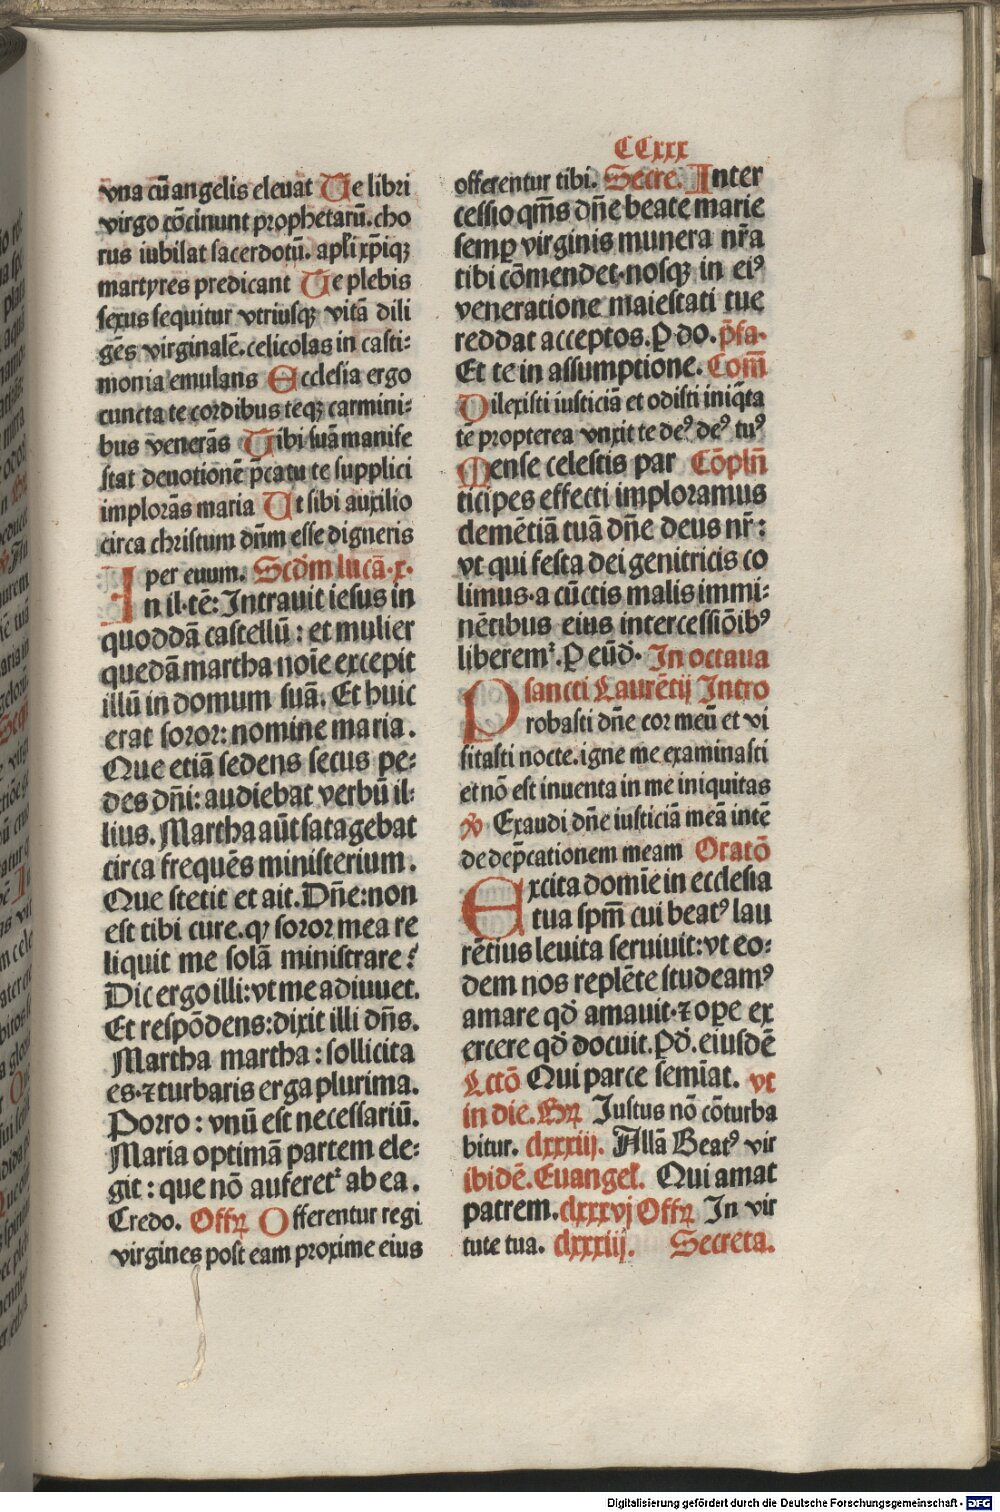 CCxxx
vna cū angelis eleuat Te libri
virgo cōcinunt prophetarū. cho
rus iubilat sacerdotū. apl̄i xp̄iqꝫ
martyres predicant Te plebis
sexus sequitur vtriusqꝫ vitā dili
gēs virginalē. celicolas in casti:
monia emulans Ecclesia ergo
cuncta te cordibus teqꝫ carmini:
bus venerās Tibi suā manife
stat deuotionē p̄catu te supplici
implorās maria Ut sibi auxilio
circa christum dn̄m esse digneris
per euum. Scd̄m lucā .x.
In il. tē: Intrauit iesus in
quoddā castellū: et mulier
quedā martha noīe excepit
illū in domum suā. Et huic
erat soror: nomine maria.
Que etiā sedens secus pe:
des dn̄i: audiebat verbū il:
lius. Martha aūt satagebat
circa frequēs ministerium.
Que stetit et ait. Dn̄e: non
est tibi cure. qꝫ soror mea re
liquit me solā ministrare?
Dic ergo illi: vt me adiuuet.
Et respōdens: dixit illi dn̄s.
Martha martha: sollicita
es. ⁊ turbaris erga plurima.
Porro: vnū est necessariū.
Maria optimā partem ele:
git: que nō auferetᷣ ab ea.
Credo. Offꝝ Offerentur regi
virgines post eam proxime eius
offerentur tibi. Secre. Inter
cessio qm̄s dn̄e beate marie
semꝑ virginis munera nr̄a
tibi cōmendet. nosqꝫ in eiꝰ
veneratione maiestati tue
reddat acceptos. P do. p̄fa.
Et te in assumptione. Com̄
Dilexisti iusticiā et odisti iniq̄ta
tē propterea vnxit te deꝰ deꝰ tuꝰ
Mense celestis par Cōpln̄
ticipes effecti imploramus
clemētiā tuā dn̄e deus nr̄:
vt qui festa dei genitricis co
limus. a cūctis malis immi:
nētibus eius intercessiōibꝰ
liberemᷣ. P eūd. In octaua
sancti Laurētij Intro
Probasti dn̄e cor meū et vi
sitasti nocte. igne me examinasti
et nō est inuenta in me iniquitas
℣ Exaudi dn̄e iusticiā meā intē
de dep̄cationem meam Oratō
Excita domīe in ecclesia
tua spm̄ cui beatꝰ lau
rētius leuita seruiuit: vt eo:
dem nos replēte studeamꝰ
amare qd̄ amauit. ⁊ ope ex
ercere qd̄ docuit. Pd. eiusdē
Lctō Qui parce semīat. vt
in die. Grꝝ Iustus nō cōturba
bitur. clxxxiij. Allā Beatꝰ vir
ibidē. Euangel̄. Qui amat
patrem. clxxxvj Offꝝ In vir
tute tua. clxxxiij. Secreta.
Digitalisierung gefördert durch die Deutsche Forschungsgemeinschaft - DFG